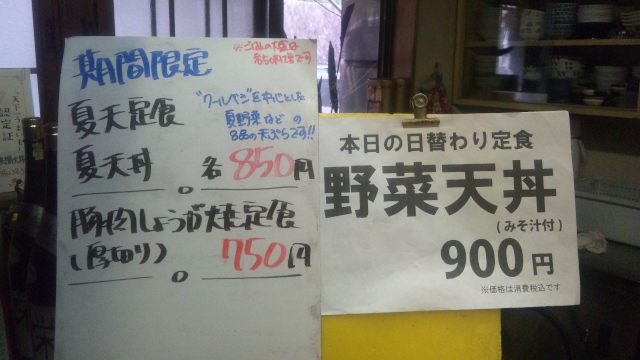 期間限定
※ごはんの大盛は
有料です
夏天定食
"クールベジ"を中心とした
夏野菜などの
8品の天ぷらです!!
夏天丼
各850円
豚肉しょうが焼定食
(厚切り)
750円
本日の日替わり定食
野菜天丼
(みそ汁付)
900円
※価格は消費税込です
認定証